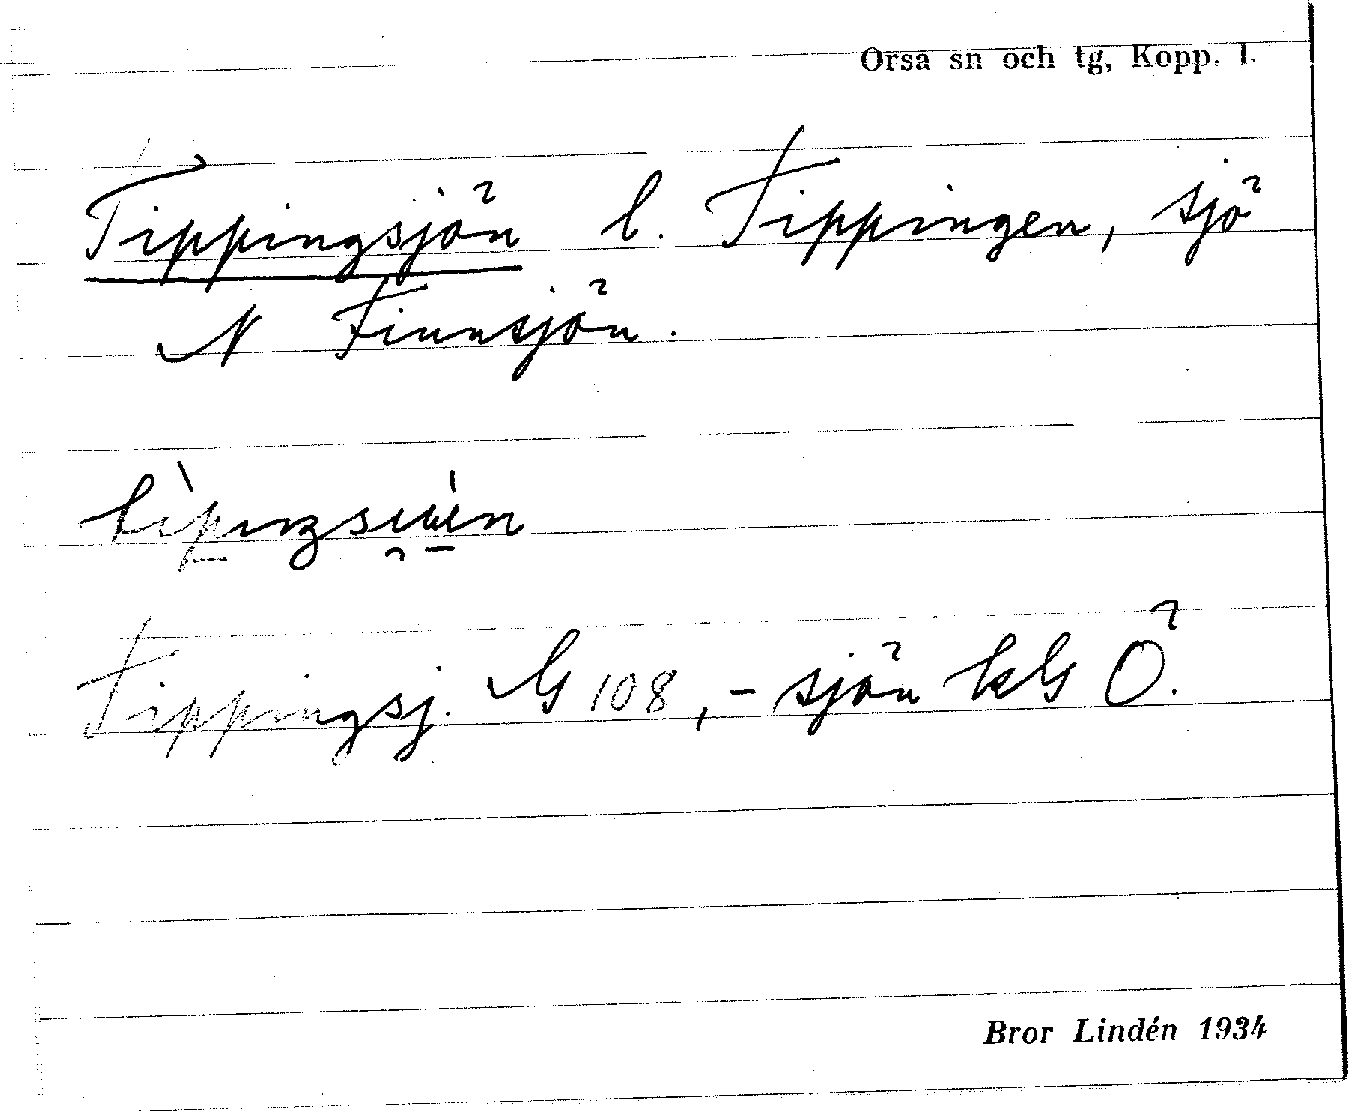 Orsa sn och tg, Kopp. l.
Tippingsjön l. Tippingen, sjö
N Finnsjön.
Tippingsj. G 108, - sjön kG Ö.
Bror Lindén 1934